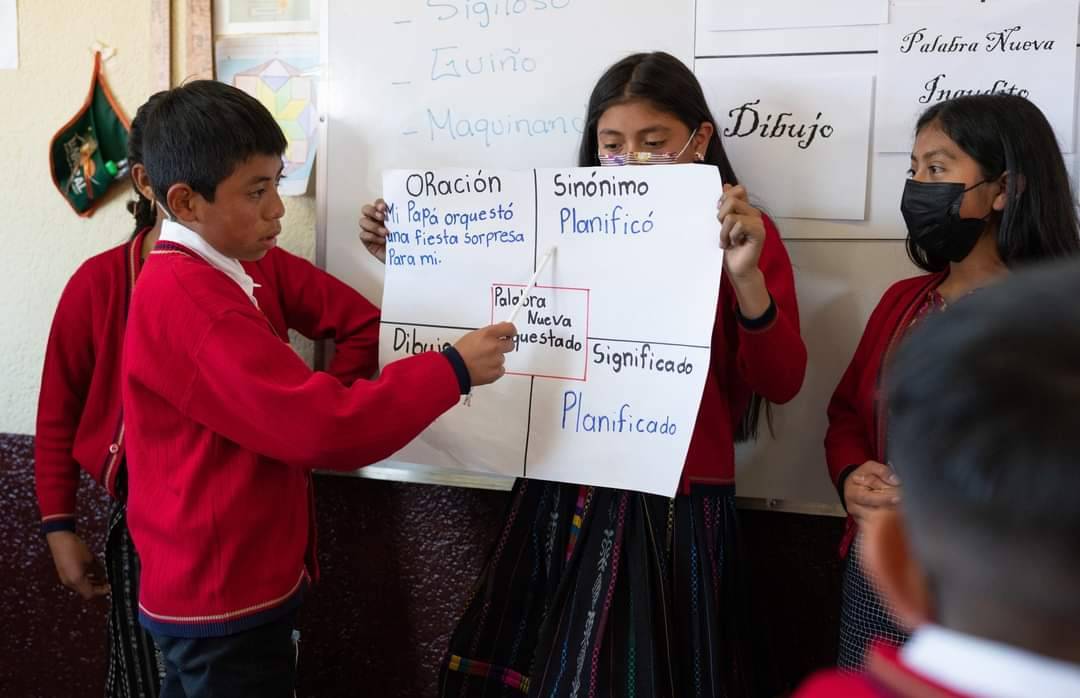 - Sigiloso
- Guiño
- Maquinand
Dibujo
Palabra Nueva
Inaudito
ORación
Mi Papá orquestó
una fiesta sorpresa
Para mi.
Sinónimo
Planificó
Palabra
Nueva
Dibujo
Significado
Planificado